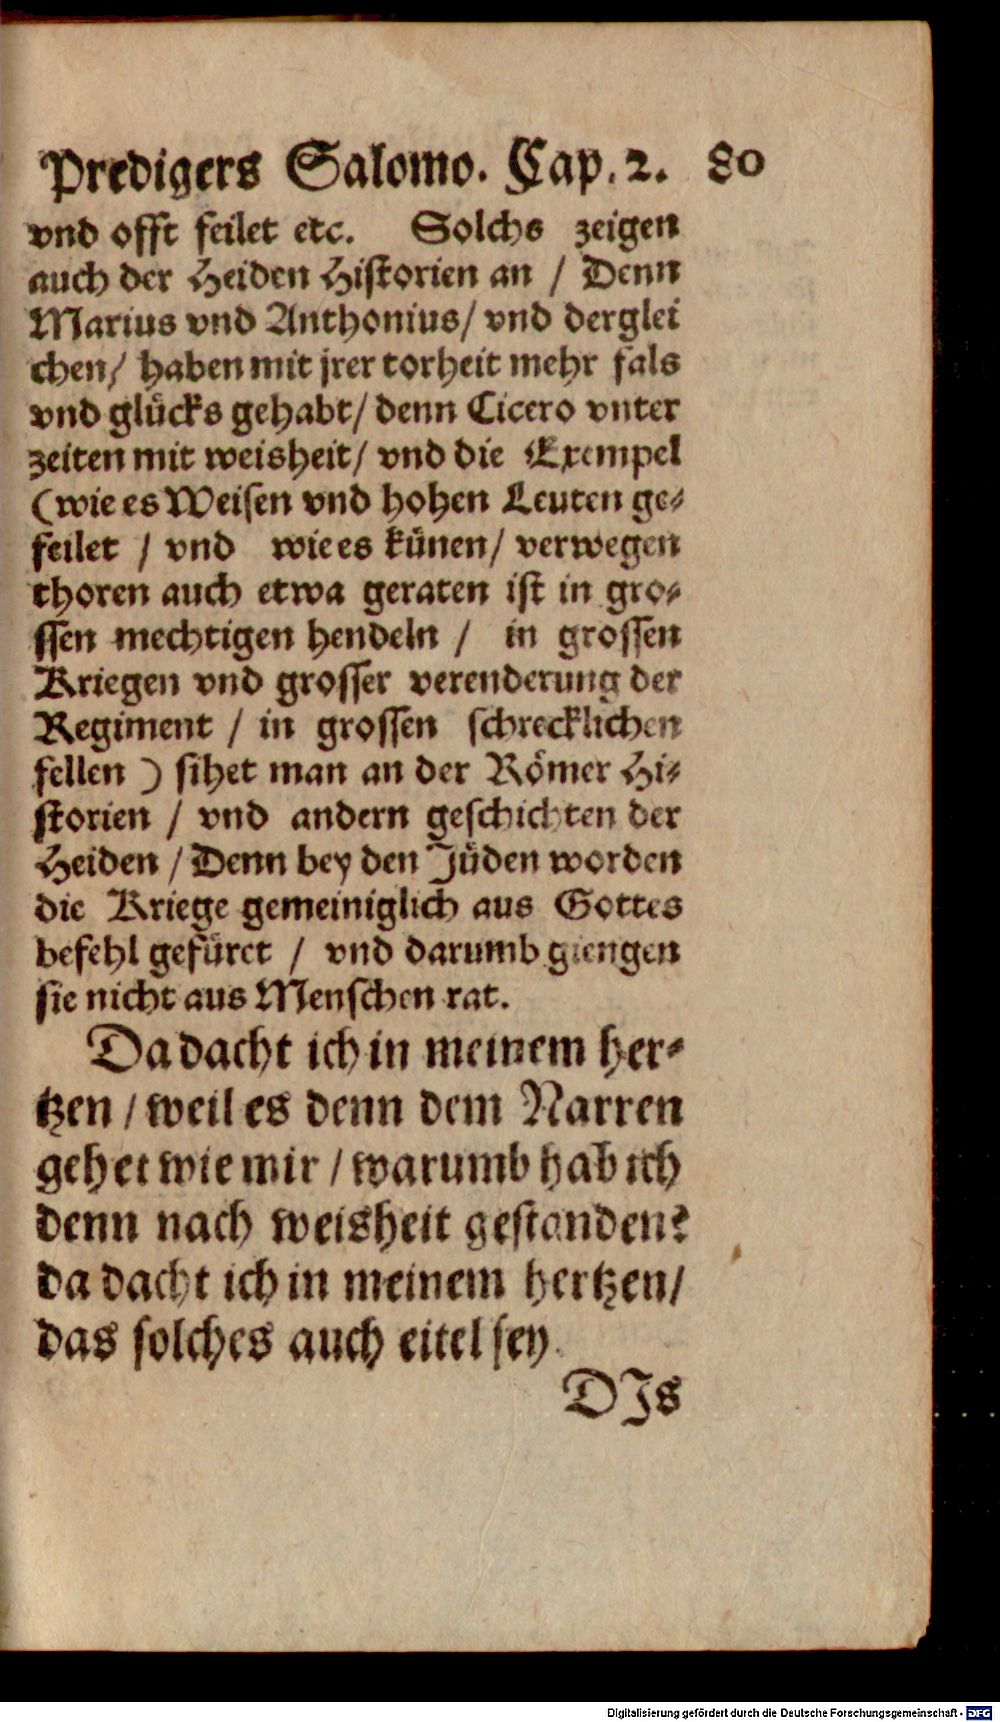 Predigers Salomo. Cap. 2. 80
vnd offt feilet etc. Solchs zeigen
auch der Heiden Historien an / Denn
Marius vnd Anthonius / vnd derglei
chen / haben mit jrer torheit mehr fals
vnd glücks gehabt / denn Cicero vnter
zeiten mit weisheit / vnd die Exempel
(wie es Weisen vnd hohen Leuten ge-
feilet / vnd wie es künen / verwegen
thoren auch etwa geraten ist in gro-
ssen mechtigen hendeln / in grossen
Kriegen vnd grosser verenderung der
Regiment / in grossen schrecklichen
fellen ) sihet man an der Römer Hi-
storien / vnd andern geschichten der
Heiden / Denn bey den Jüden worden
die Kriege gemeiniglich aus Gottes
befehl gefüret / vnd darumb giengen
sie nicht aus Menschen rat.
Da dacht ich in meinem her-
tzen / weil es denn dem Narren
gehet wie mir / warumb hab ich
denn nach weisheit gestanden?
da dacht ich in meinem hertzen /
das solches auch eitel sey.
DJs
Digitalisierung gefördert durch die Deutsche Forschungsgemeinschaft - DFG